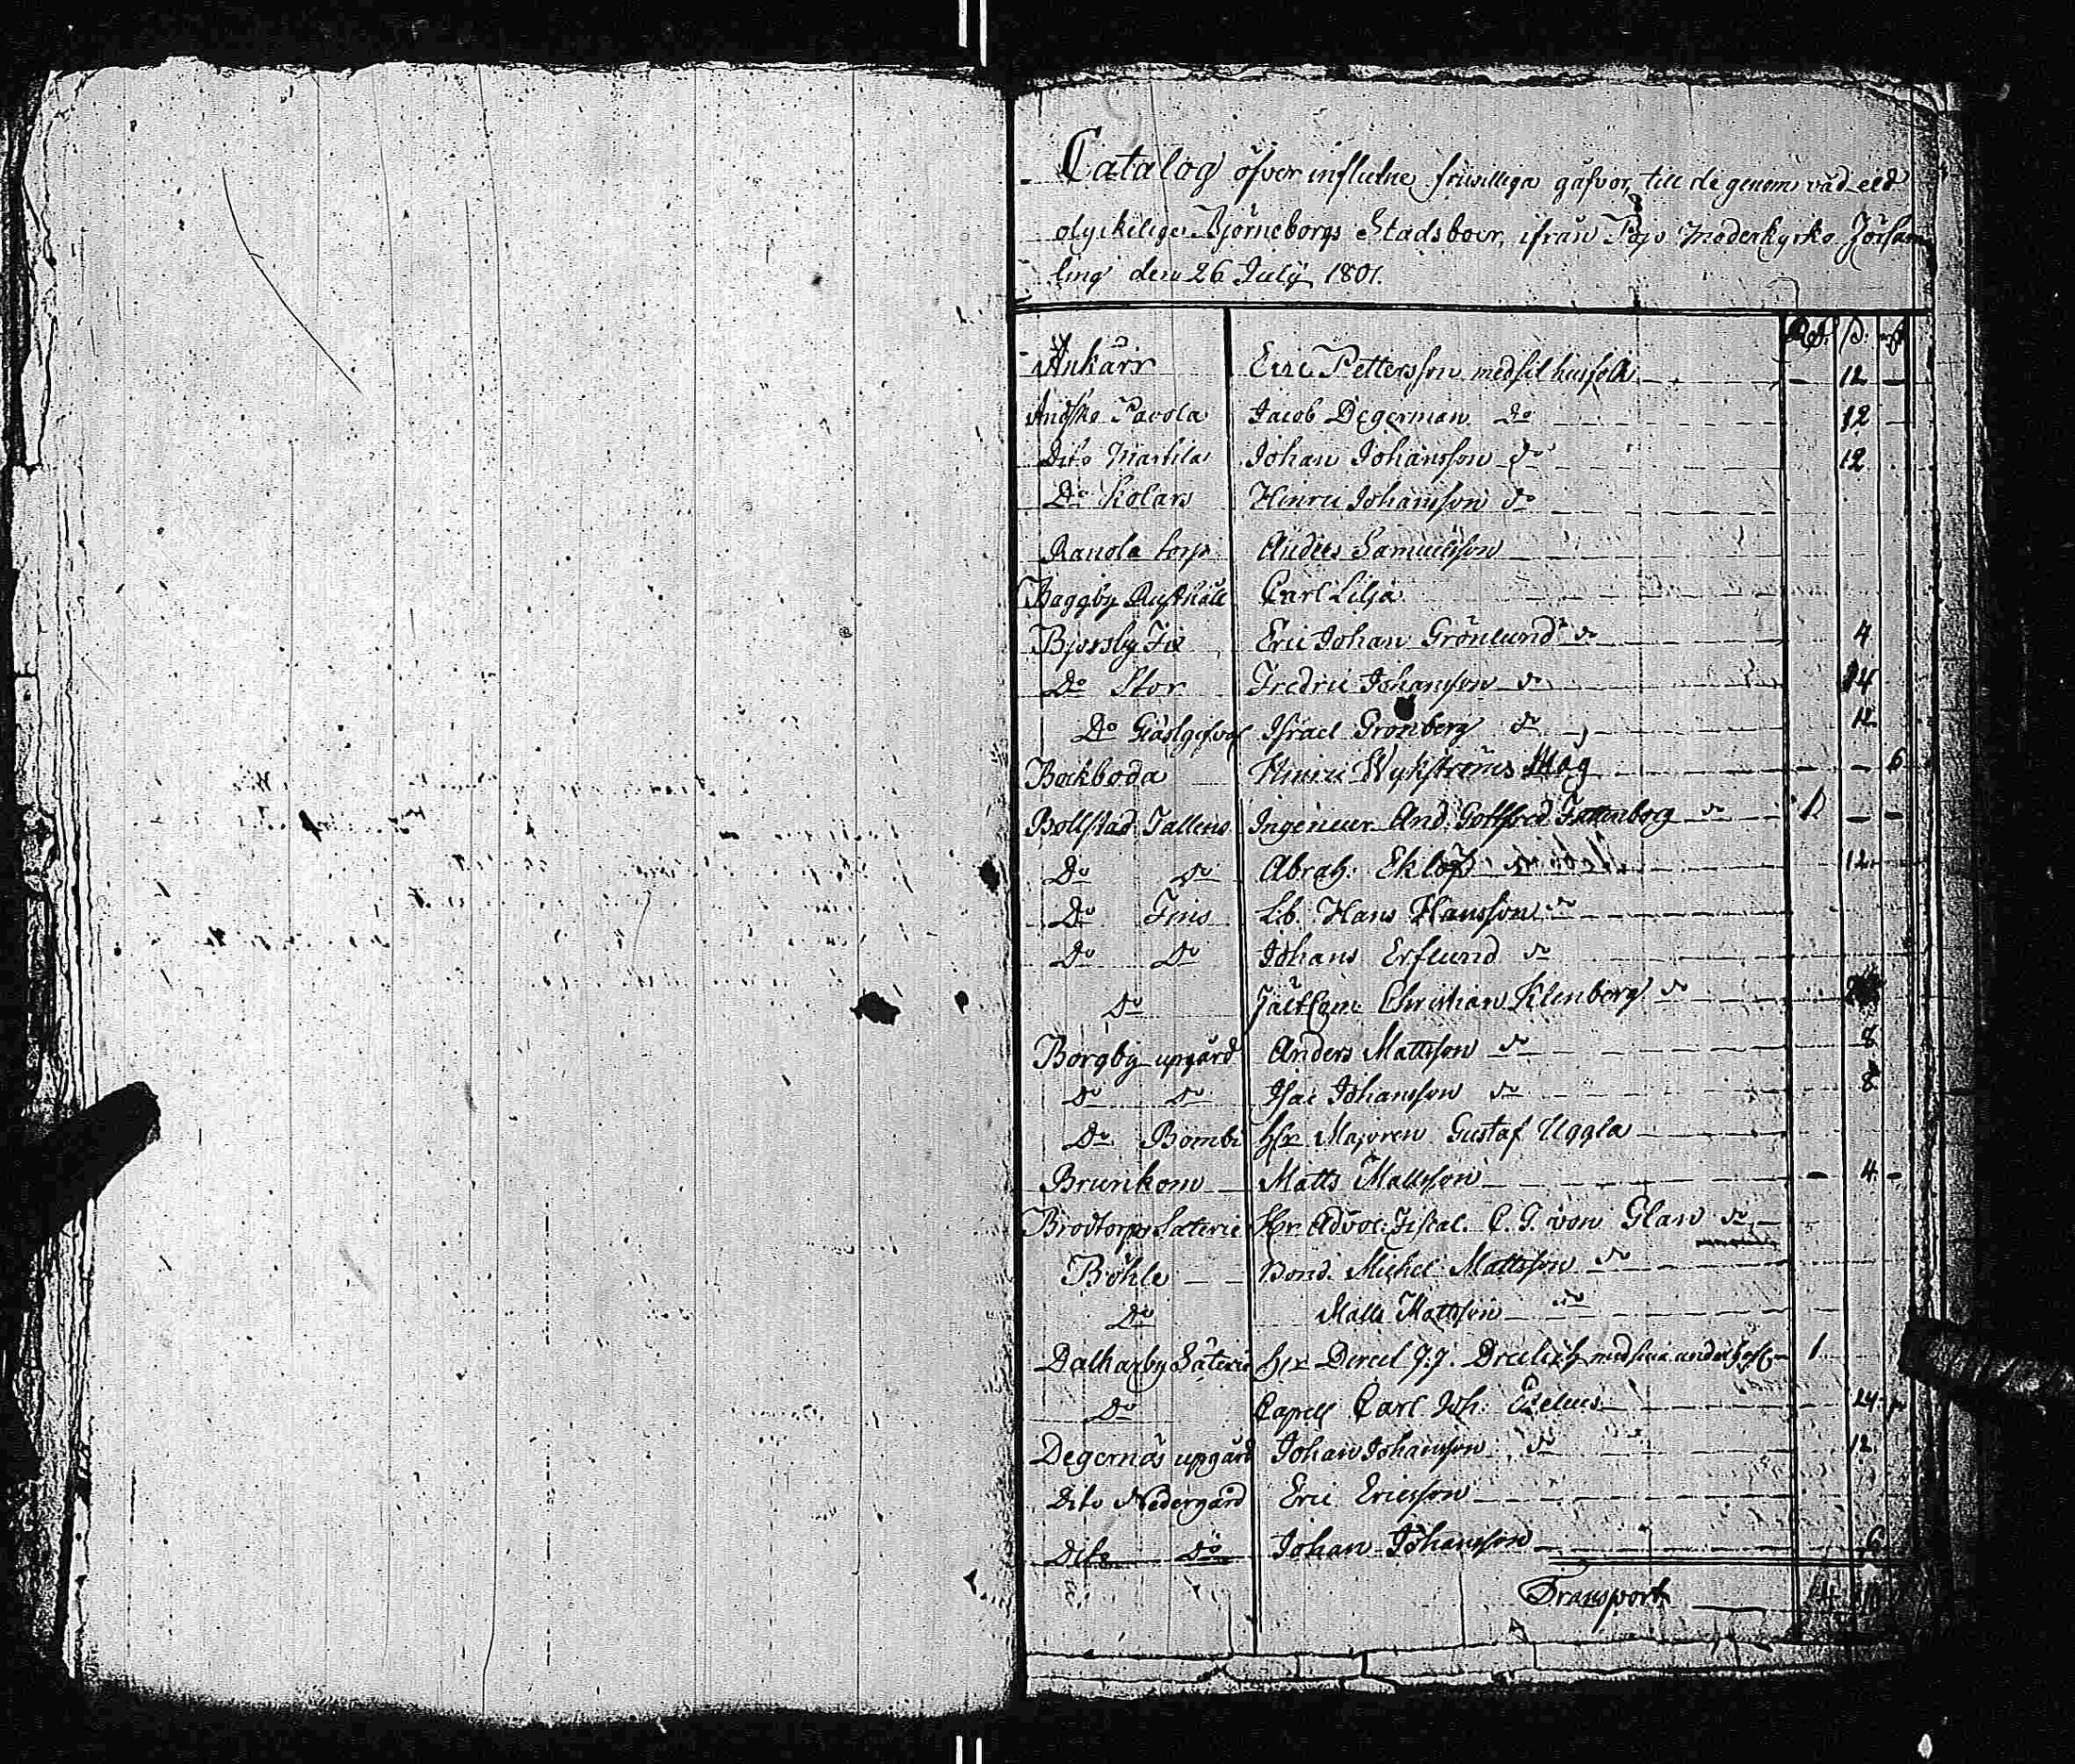 Catalog öfver influtne friwilliga gåfvor, till de genom vådeld
olyckelige Björneborgs Stadsboer, ifrån Pojo Moderkyrko Försam
ling den 26 July 1801.
Ankärr Eric Pettersson med sit husfolk — 12 —
Andskö Pavola Jacob Degerman Do 12 —
Dito Martilas Johan Johansson do 12
Do Kolars Hinric Johansson do
Ranola torp Anders Samuelsson
Baggby Rusthåll Carl Lilja
Byersby Eric Johan Grönlund do 4
Do Stor Fredric Johansson do 14
Do Gästgifvar Israel Grönberg do 12
Bockboda Hinric Wykströms Måg — — 6
Bollstad Tallens Ingenieur And. Gottfred do — —
Do do Abrah: Eklöf do 12
Do Fins Hans Hansson do
Do Do Johans Erslund do
Do Christian Klinberg do
Borgby upgård Anders Mattsson do 8
do do Isac Johansson do 8
Do Bomb Hr Majoren Gustaf Uggla
Brunkom Matts Mattsson — 4 —
Brödtorps Säterie Hr Advoc: Fiscal. C. G. von Glan do
Böhle Bond. Michel Mattsson do
Do Matts Mattsson do
Dalkarby Säterie Hr med sina underhafv 1
Do Capell Carl Joh: 24
Degernäs upgård Johan Johansson do 12
Dito Nedergård Eric Ericsson
Dito do Johan Johansson 6
Transport